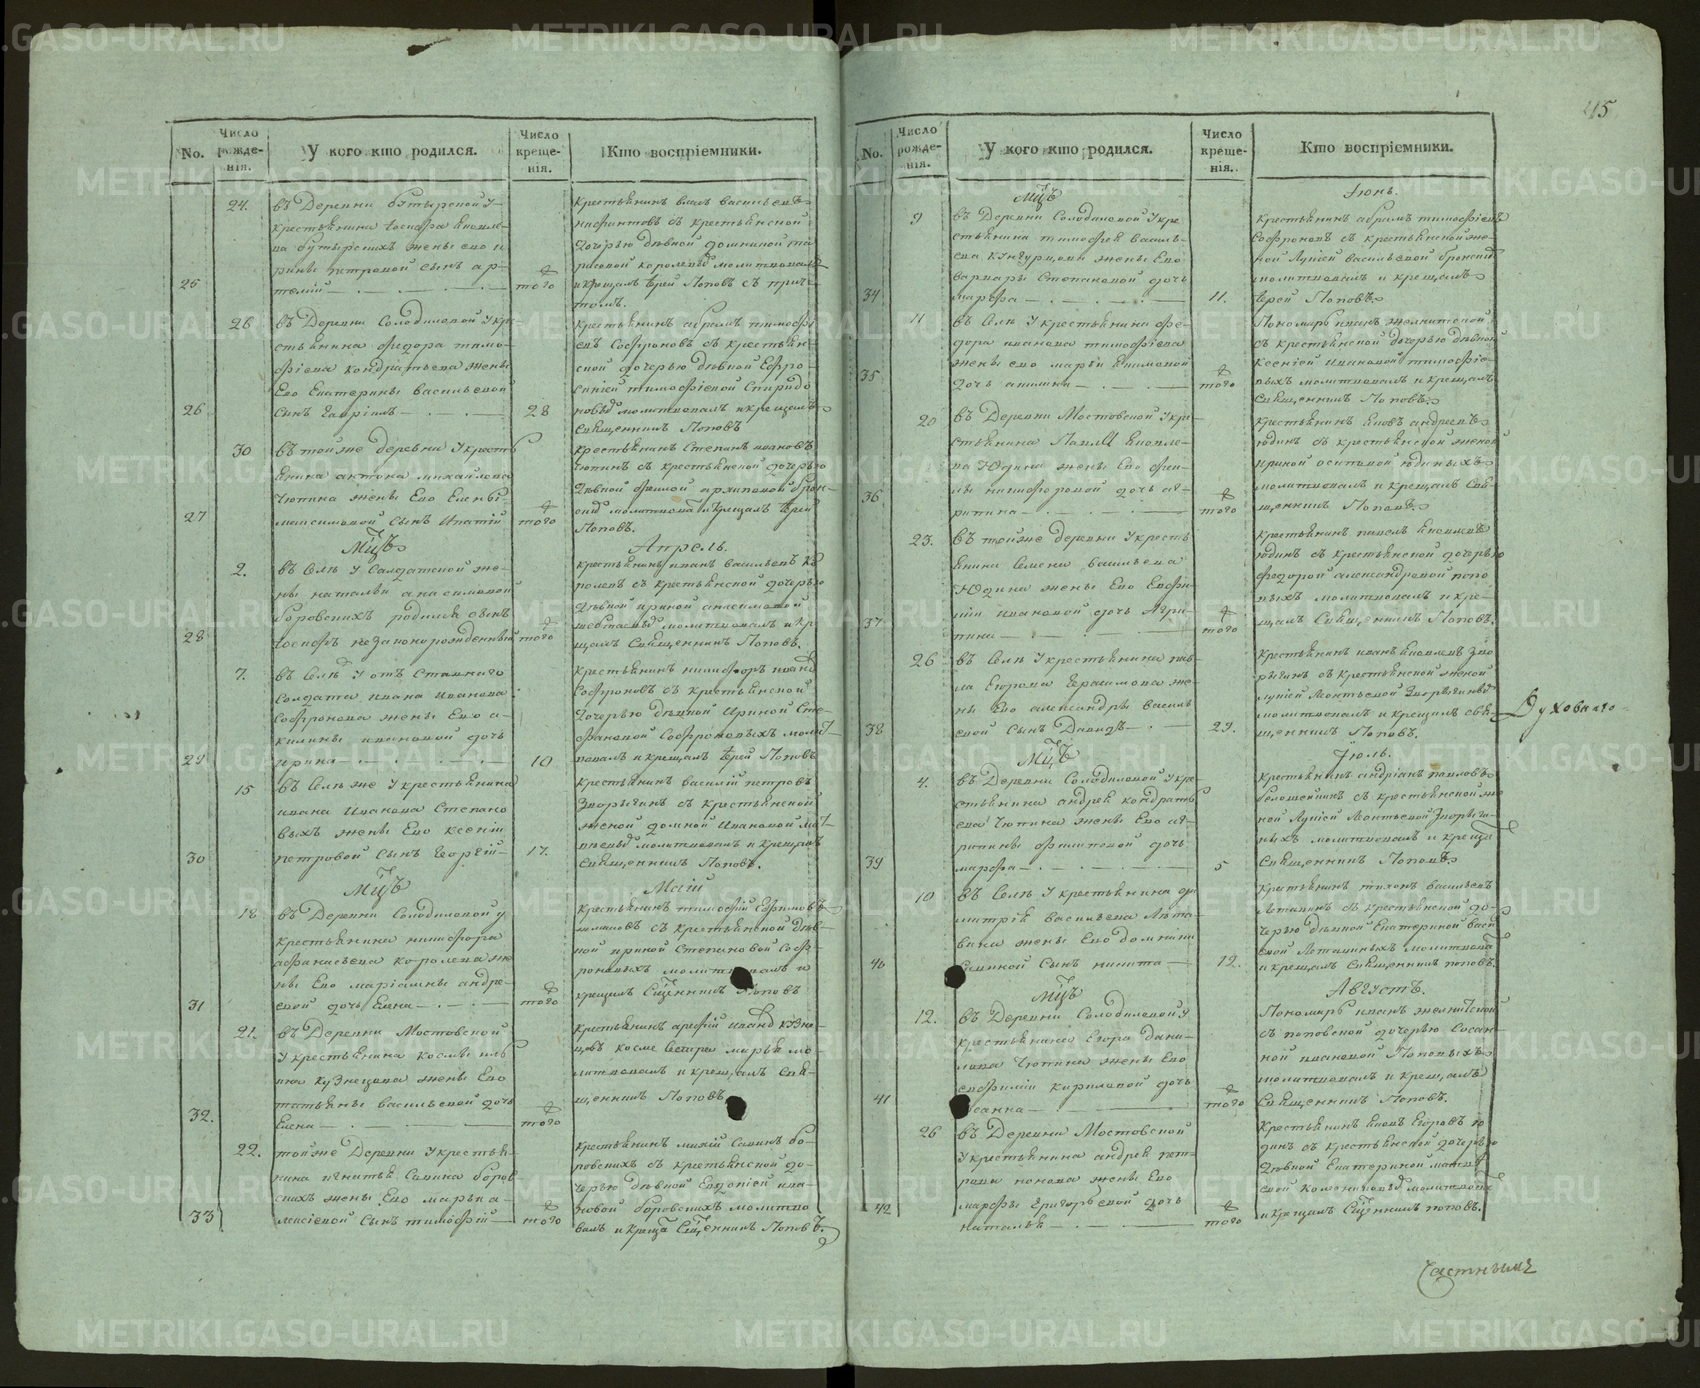 45
No.
Число рожде-нія.
У кого кто родился.
Число креще-нія.
Кто воспріемники.
24.
въ Деревни бутырской у
крестьянина Іосифа
ва бутырскихъ жены его и
рины петровой сынъ ар
25
темій
того
Крестьянинъ власъ васильевъ
никонтовъ съ крестьянской
дочерью девкой домникой та
расовой королевы молитвовалъ
и крещалъ Іерей Поповъ съ прич
томъ.
26
въ Деревни Солодиловой у кре
стьянина федора тимо
фіева кондратьева жены
Его Екатерины васильевой
26
сынъ Гавріилъ
28
крестьянинъ абрамъ тимофі
евъ Софроновъ съ крестьян
ской дочерью девкой Ефро
синіей тимофіевой Спиридо
новы молитвовалъ и крещалъ
священникъ Поповъ
30
въ тойже деревни у кресть
янина антона михайлова
Чютина жены Его Елены
27
максимовой сынъ Ипатій
того
крестьянинъ Степанъ ивановъ
Чютинъ съ крестьянской дочерью
девкой феклой архиповой
молитвова и крещалъ Іерей
Поповъ.
Мцъ
Апрель.
2.
въ Селе у Салдатской же
ны натальи анисимовой
боровскихъ родился сынъ
28
Іосифъ незаконорожденный
того
крестьянинъ иванъ васильевъ ко
ролевъ съ крестьянской дочерью
девкой ириной анисимовой
молитвовалъ и кре
щалъ Священникъ Поповъ.
7.
въ Селе у отъ Ставнаго
Солдата ивана Иванова
Софронова жены Его а
килины ивановой дочь
29
ирина
10
крестьянинъ никифоръ иванъ
Софроновъ съ крестьянской
дочерью девкой Ириной Сте
фановой Софроновыхъ моли
вовалъ и крещалъ Іерей Поповъ
15
въ Селе же у крестьянина
ивана Иванова Степано
выхъ жены Его ксеніи
30
петровой сынъ Георгій
17.
крестьянинъ василій петровъ
Зворыгинъ съ крестьянской
женой домной Ивановой
молитвовалъ и крещалъ
Священникъ Поповъ.
Мцъ
Маій
18
въ Деревни Солодиловой у
крестьянина никифора
афанасьева королева же
ны Его маріамны андре
31
евой дочь Елена
того
крестьянинъ тимофій Ефимовъ
съ крестьянской дев
кой ириной Степановой Соф
роновыхъ молитвовалъ и
крещалъ Сщенникъ Поповъ
21.
въ Деревни Мостовской
у крестьянина космы иль
ина кузнецова жены Его
татьяны васильевой дочь
32.
Елена
того
крестьянинъ арефій иванъ кузне
цовъ косме Сестра марья мо
литвовалъ и крещалъ Свя
щенникъ Поповъ.
22.
тойже Деревни у крестья
нина игнатья Савина боров
скихъ жены Его марьи а
33
лексіевой сынъ тимофій
того
крестьянинъ михій Савинъ бо
ровскихъ съ крестьянской до
черью девкой Евдокіей ива
новой боровскихъ молитво
валъ и креща Сщенникъ Поповъ.
No.
Число рожде-нія.
У кого кто родился.
Число креще-нія.
Кто воспріемники.
Мцъ
Іюнь.
9
въ Деревни Солодиловой у кре
стьянина тимофея василь
ева кунгурцова жены Его
варвары Степановой дочь
34
марфа
11.
крестьянинъ абрамъ тимофіевъ
Софроновъ съ крестьянской же
ной Лукіей васильевой
молитвовалъ и крещалъ
Іерей Поповъ
11
въ Селе у крестьянина фе
дора иванова тимофіева
жены его марьи якимовой
35
дочь акилина
того
Пономарь иванъ
съ крестьянской дочерью девкой
Ксеніей Ивановой тимофіе
выхъ молитвовалъ и крещалъ
Священникъ Поповъ
20
въ Деревни Мостовской у кре
стьянина Павла яковле
ва Юдина жены Его фек
лы никифоровой дочь аг
36
рипина
того
крестьянинъ яковъ андреевъ
юдинъ съ крестьянской женой
ириной осиповой юдиныхъ
молитвовалъ и крещалъ Свя
щенникъ Поповъ
23.
въ тойже деревни у кресть
янина Семена васильева
Юдина жены Его Евфи
міи ивановой дочь Агри
37
пина
того
крестьянинъ павелъ яковлевъ
юдинъ съ крестьянской дочерью
федорой александровой попо
выхъ молитвовалъ и кре
щалъ Священникъ Поповъ.
26
въ Селе у крестьянина пав
ла Егорова Герасимова же
ны Его александры василь
38
евой сынъ Давидъ
29.
крестьянинъ иванъ яковлевъ Зво
рыгинъ съ крестьянской женой
лукіей леонтьевой Зворыгины
молитвовалъ и крещалъ свя
щенникъ Поповъ.
Духовнаго
Мцъ
Іюль.
4.
въ Деревни Солодиловой у кре
стьянина андрея кондрать
ева Чютина жены Его аг
рипины филиповой дочь
39
марфа
5
крестьянинъ андріанъ павловъ
белошейкинъ съ крестьянской же
ной Лукіей Леонтьевой Зворыги
ныхъ молитвовалъ и креща
Священникъ Поповъ
10
въ Селе у крестьянина ди
митрія васильева Лета
вина жены Его домники
40
Саввиной Сынъ никита
12.
крестьянинъ тихонъ васильевъ
съ крестьянской до
черью девкой Екатериной васи
евой молитвова
и крещалъ Священникъ поповъ.
Мцъ
Августъ.
12.
въ Деревни Солодиловой у
крестьянина Егора дани
лова Чютина жены Его
евфиміи кириловой дочь
41
Сосанна
того
Пономарь иванъ
съ поповской дочерью Сосан
ной ивановой Поповыхъ
молитвовалъ и крещалъ
Священникъ Поповъ.
26
въ Деревни Мостовской
у крестьянина андрея пет
рова попова жены Его
марфы григорьевой дочь
42
наталья
того
крестьянинъ яковъ Егоровъ ю
динъ съ крестьянской дочерью
девкой Екатериной матвѣ
евой молитвова
и крещалъ Сщенникъ поповъ.
METRIKI.GASO-URAL.RU